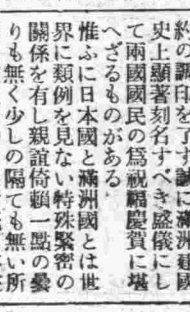 約の調印を了す誠に滿洲建國
史上顯著刻名すべき盛儀にし
て兩國國民の爲祝福慶賀に堪
へざるものがある
惟ふに日本國と滿洲國とは世
界に類例を見ない特殊緊密の
關係を有し親誼倚賴一點の曇
りも無く少しの隔ても無い所